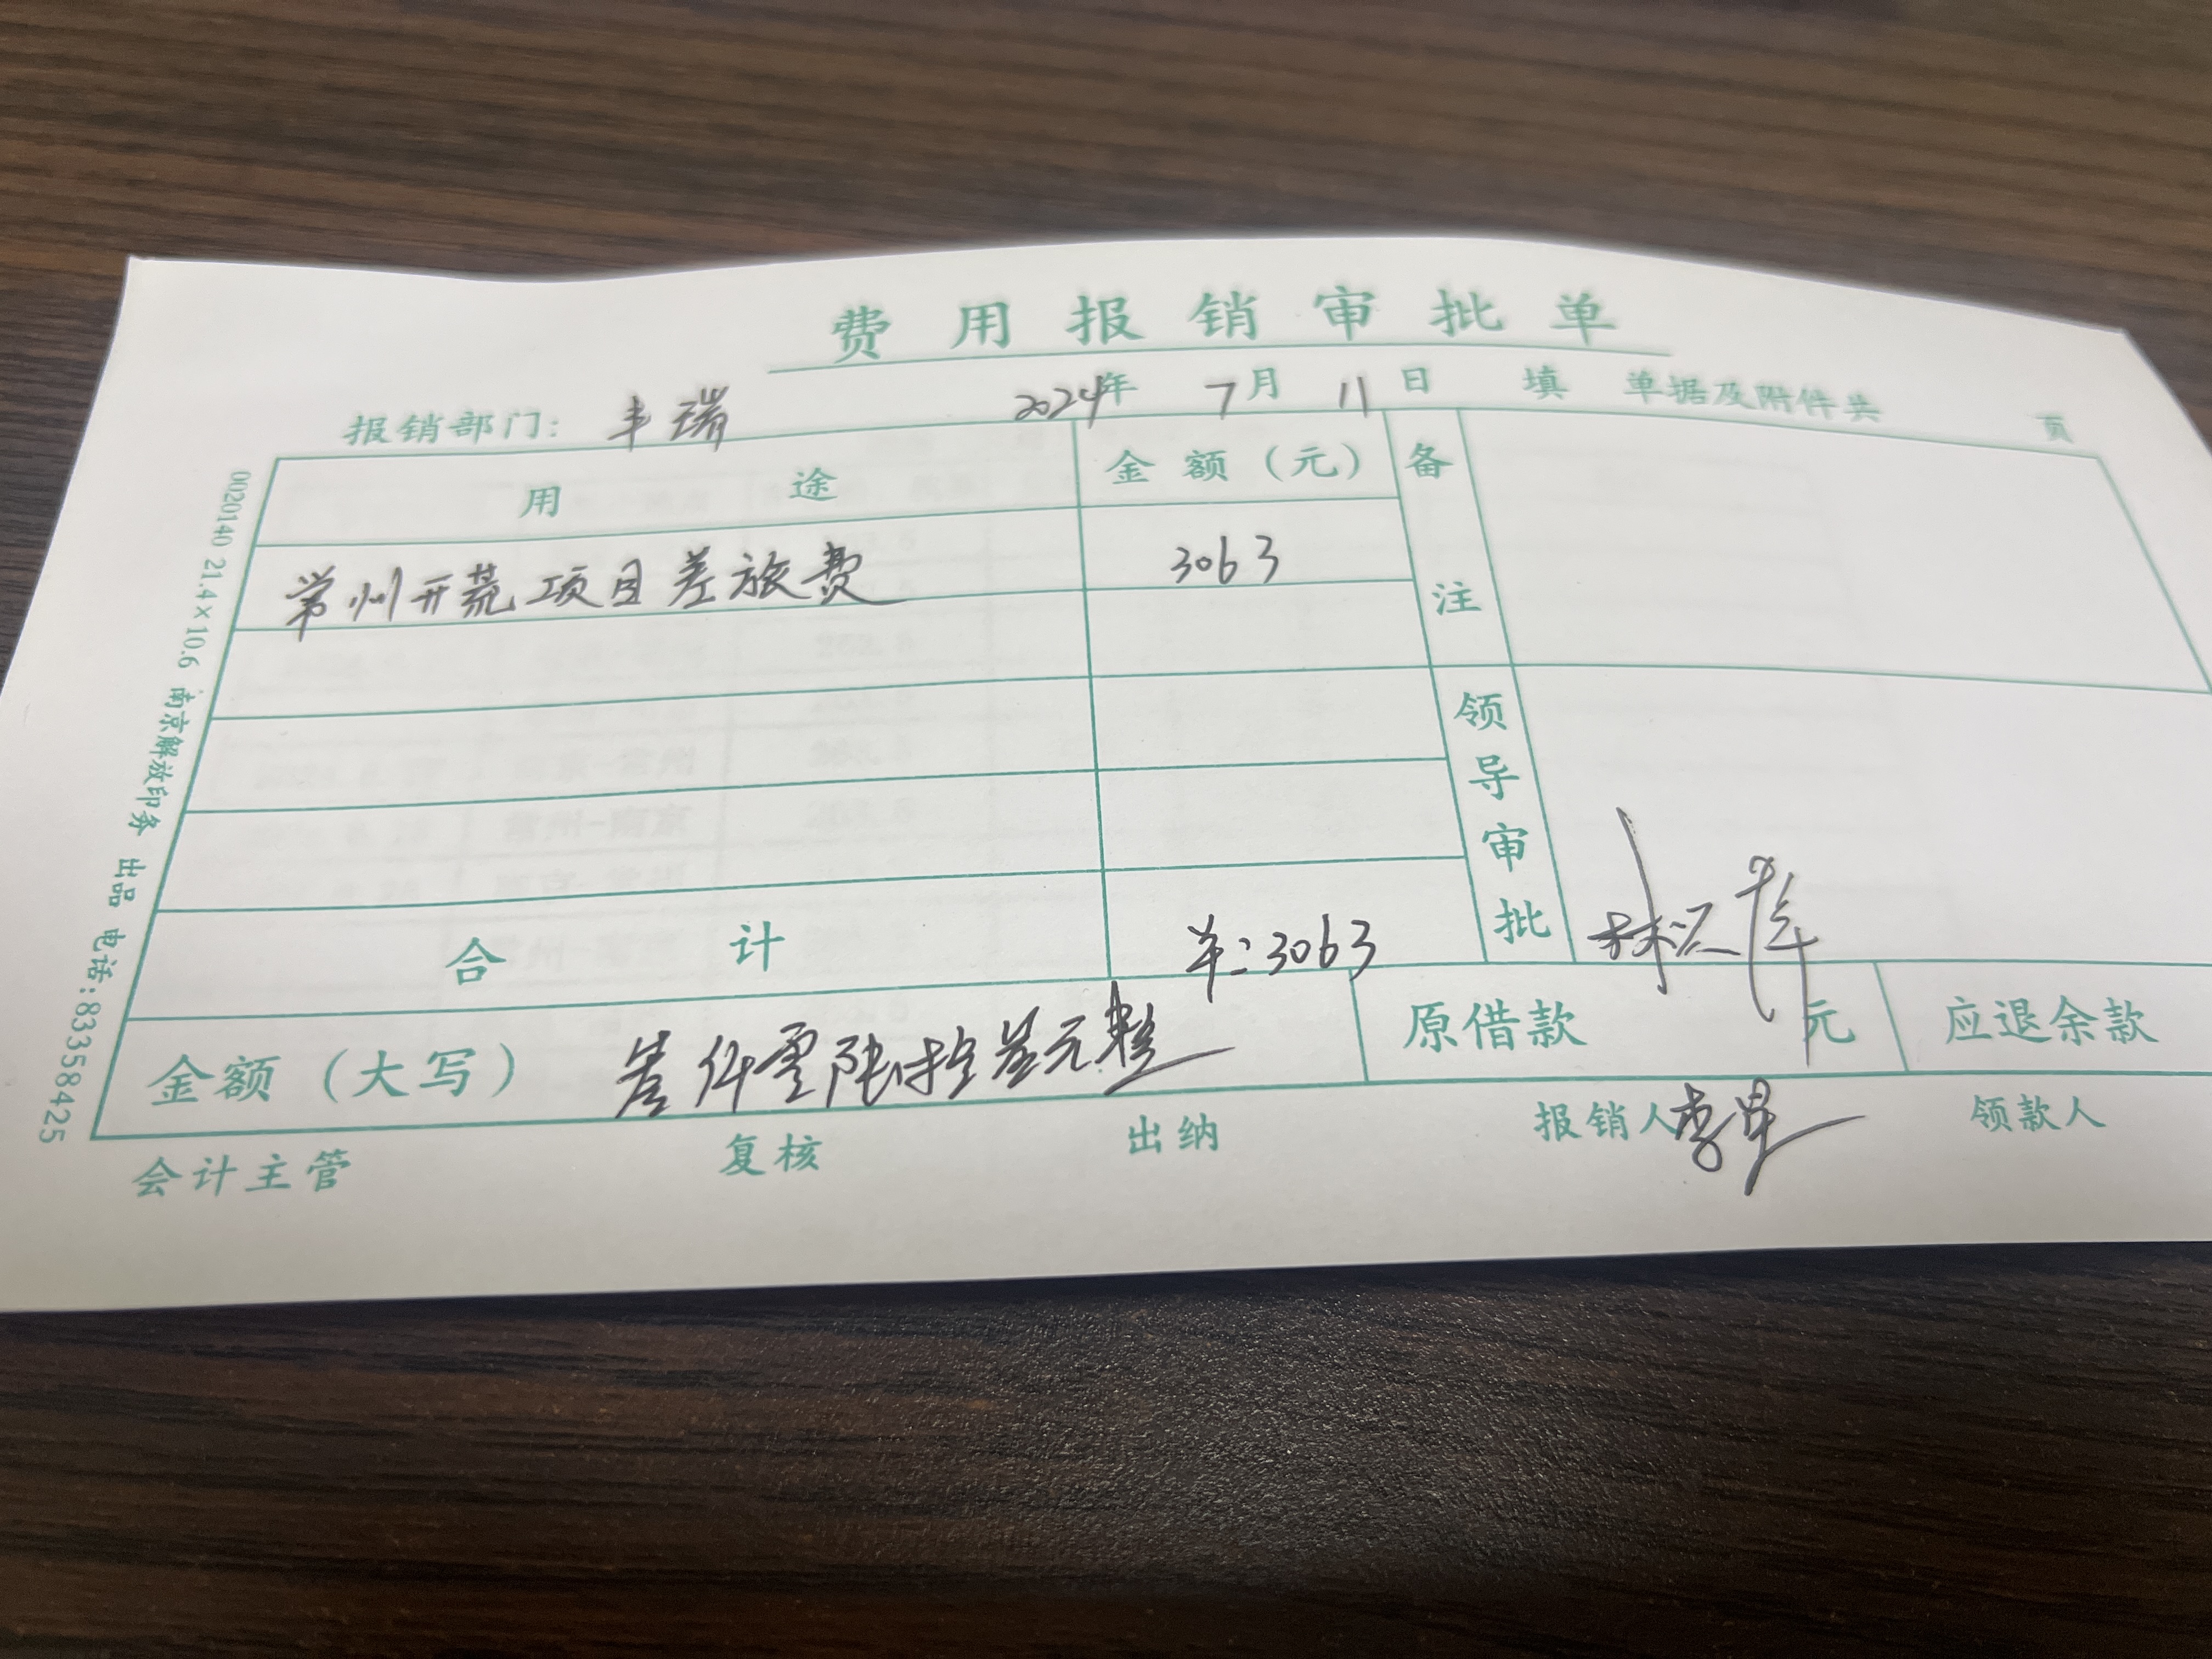 费用报销审批单
报销部门: 丰瑞 2024年 7月 11日 填 单据及附件共 页
用途 金额(元) 备注
常州开荒项目差旅费 3063
合计 羊:3063
领导审批
金额(大写) 叁仟零陆拾叁元整 原借款 元 应退余款
会计主管 复核 出纳 报销人 李早 领款人
0020140 21.4×10.6 南京解放印务 出品 电话:83358425